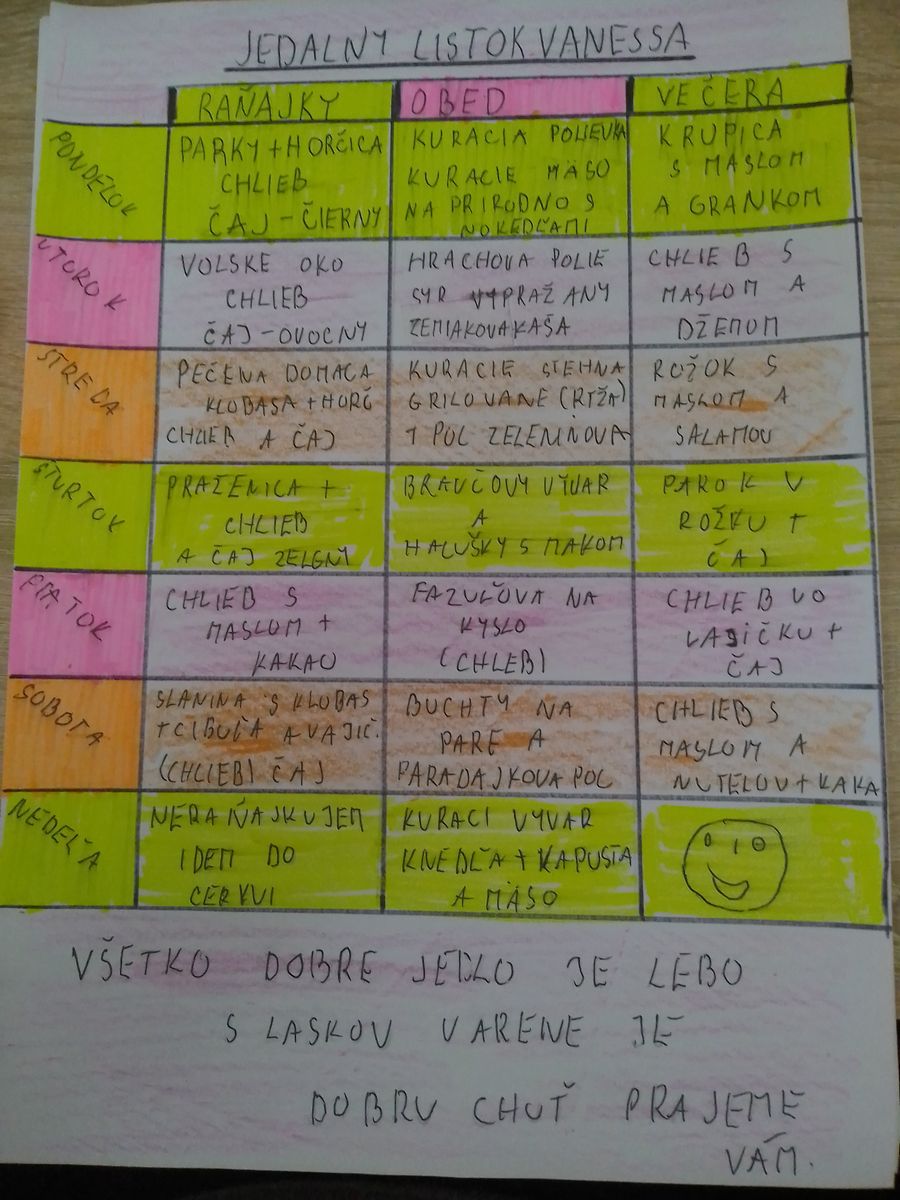 JEDALNY LISTOK VANESSA
RAŇAJKY OBED VEČERA
PONDELOK
PARKY + HORČICA
CHLIEB
ČAJ - ČIERNY
KURACIA POLIEVKA
KURACIE MÄSO
NA PRIRODNO S
NOKEDĽAMI
KRUPICA
S MASLOM
A GRANKOM
UTOROK
VOLSKE OKO
CHLIEB
ČAJ - OVOCNY
HRACHOVA POLIE
SYR VYPRAŽANY
ZEMIAKOVA KAŠA
CHLIEB S
MASLOM A
DŽEMOM
STREDA
PEČENA DOMACA
KLOBASA + HORČ
CHLIEB A ČAJ
KURACIE STEHNA
GRILOVANE (RYŽA)
1 POL ZELENINOVA
ROŽOK S
MASLOM A
SALAMOU
ŠTURTOK
PRAŽENICA +
CHLIEB
A ČAJ ZELENY
BRAVČOVY VÝVAR
A
HALUŠKY S MAKOM
PAROK V
ROŽKU +
ČAJ
PIATOK
CHLIEB S
MASLOM +
KAKAO
FAZUĽOVA NA
KYSLO
(CHLEB)
CHLIEB VO
VAJIČKU +
ČAJ
SOBOTA
SLANINA S KLOBAS
+ CIBUĽA A VAJIČ.
(CHLIEB) ČAJ
BUCHTY NA
PARE A
PARADAJKOVA POL
CHLIEB S
MASLOM A
NUTELOU + KAKA
NEDEĽA
NERAŇAJKUJEM
IDEM DO
CERKVI
KURACI VYVAR
KNEDĽA + KAPUSTA
A MÄSO
VŠETKO DOBRE JEDLO JE LEBO
S LASKOV VARENE JE
DOBRU CHUŤ PRAJEME
VÁM.